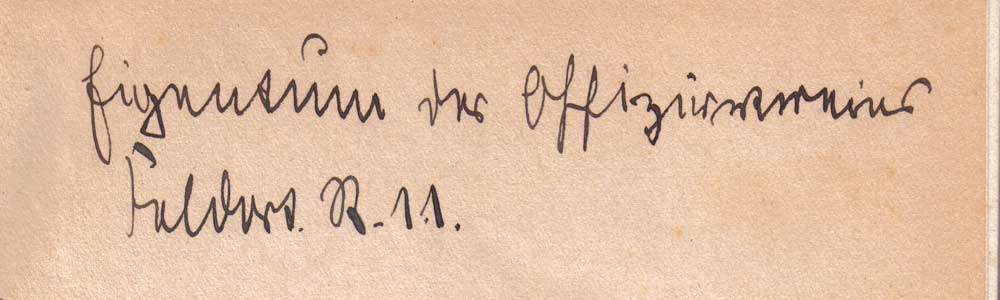 Eigentum des Offiziervereins
Feldart. R. 11.